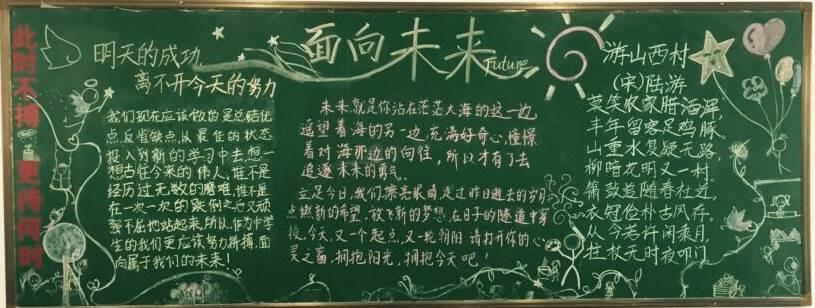 此时不搏
更待何时
明天的成功
离不开今天的努力
我们现在应该做的是总结优
点,反省缺点,从最佳的状态
投入到新的学习中去想一
想古往今来的伟人,谁不是
经历过无数的磨难,谁不是
在一次一次的跌倒之后又顽
强不屈地站起来,所以,作为中学
生的我们更应该努力拼搏,面
向属于我们的未来!
面向未来
Future
未来,就是你站在茫茫大海的这一边
遥望着海的另一边,充满好奇心,憧憬
着对海那边的向往,所以才有了去
追逐未来的勇气。
立足今日,我们擦亮眼睛,走过昨日逝去的岁月
点燃新的希望,放飞新的梦想,在日子的隧道中穿
梭,今天,又一个起点,又一轮朝阳,请打开你的心
灵之窗,拥抱阳光,拥抱今天吧!
游山西村
(宋)陆游
莫笑农家腊酒浑,
丰年留客足鸡豚。
山重水复疑无路,
柳暗花明又一村。
箫鼓追随春社近,
衣冠俭朴古风存。
从今若许闲乘月,
拄杖无时夜叩门。